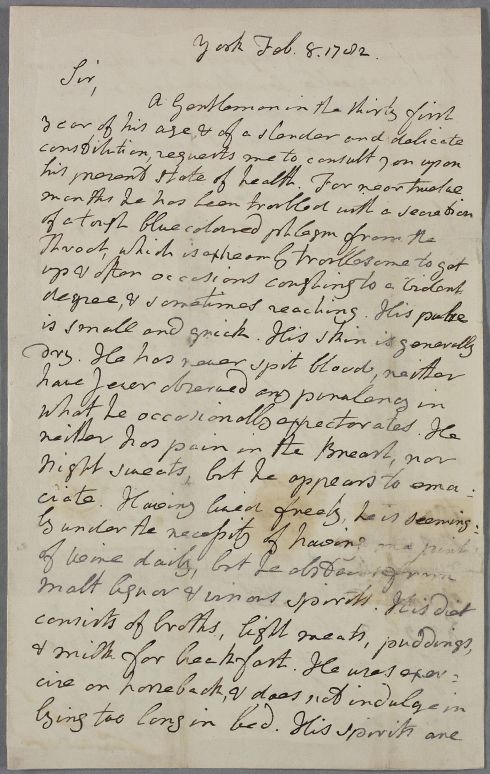 York Feb. 8. 1782.
Sir,
A Gentleman in the thirty first
year of his age, & of a slender and delicate
constitution, requests me to consult you upon
his present state of health. For near twelve
months he has been troubled with a secretion
of a tough blue coloured phlegm from the
throat, which is extreamly troublesome to get
up & often occasions coughing to a violent
degree, & sometimes reaching. His pulse
is small and quick. His skin is generally
dry. He has never spit blood, neither
have I ever observed any purulency in
what he occasionally expectorates. He
neither has pain in the Breast, nor
night sweats, but he appears to ema-
ciate. Having lived freely, he is seeming-
ly under the necessity of having a pint
of wine daily, but he abstains from
malt liquor & vinous spirits. His diet
consists of broths, light meats, puddings,
& milk for breakfast. He uses exer-
cise on horseback, & does not indulge in
lying too long in bed. His spirits are